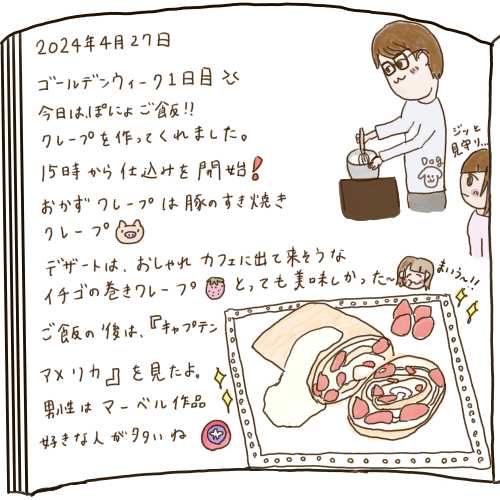 2024年4月27日
ゴールデンウィーク1日目
今日は、ぽにょご飯!!
クレープを作ってくれました。
15時から仕込みを開始!
おかずクレープは豚のすき焼き
クレープ
デザートは、おしゃれカフェに出て来そうな
イチゴの巻きクレープ とっても美味しかった~
ご飯の後は、『キャプテン
アメリカ』を見たよ。
男性はマーベル作品
好きな人が多いね
ジッと
見守り...
Dog
まいうー!!